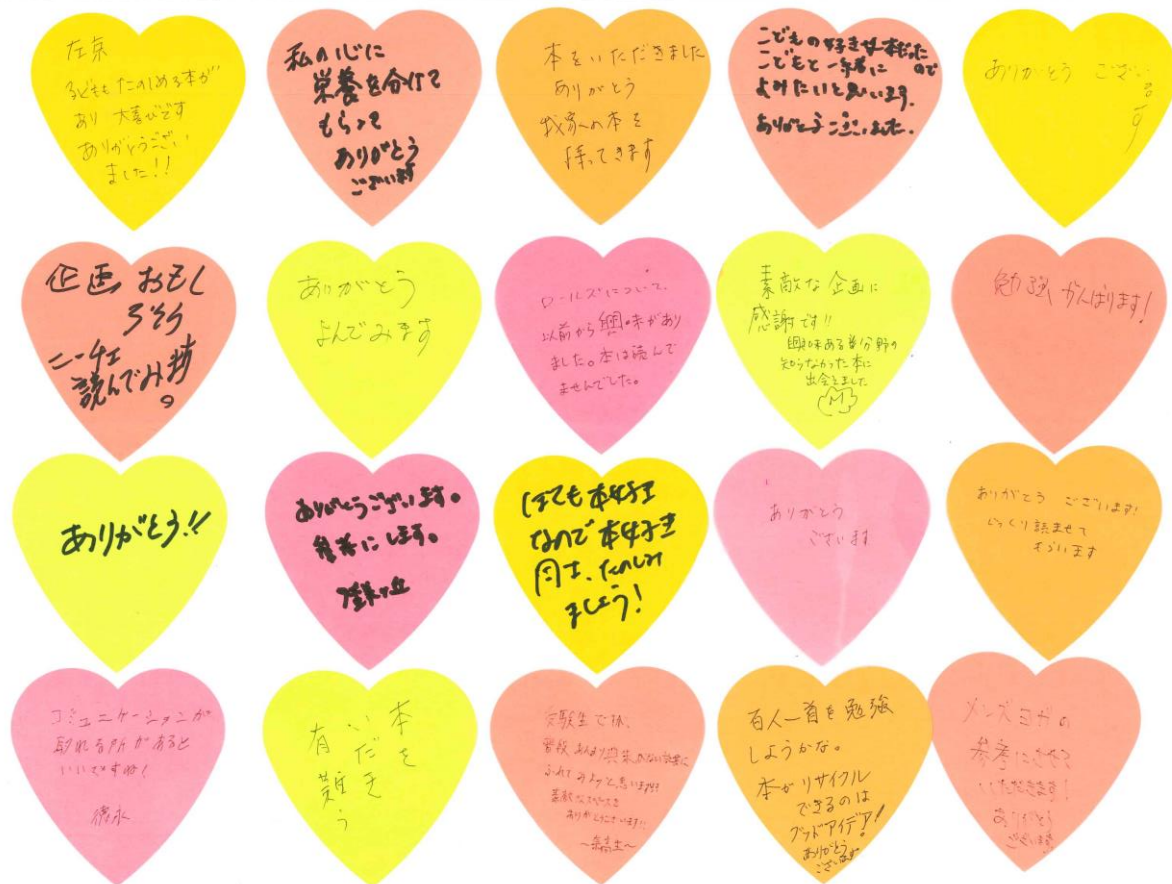 左京
子どももたのしめる本が
あり 大喜びです
ありがとうござい
ました!!
私の心に
栄養を分けて
もらって
ありがとう
ございます
本をいただきました
ありがとう
我家への本を
持ってきます
こどもの好きな本だった
ので
こどもと一緒に
よみたいと思います。
ありがとうございました。
ありがとう ございます
企画 おもし
ろそう
ニーチェ
読んでみます。
ありがとう
よんでみます
ロールズについて、
以前から興味があり
ました。本は読んで
ませんでした。
素敵な企画に
感謝です!!
興味ある分野の
知らなかった本に
出会えました
M
勉強 がんばります!
ありがとう!!
ありがとうございます。
参考にします。
とても本好き
なので本好き
同士、たのしみ
ましょう!
ありがとう
ございます
ありがとう ございます!
じっくり読ませて
もらいます
コミュニケーションが
取れる所があると
いいですね!
徳永
本を
いただき
有難う
受験生で体、
普段あんまり興味のない
ふれてみようと思います
素敵な
ありがとうございます!!
百人一首を勉強
しようかな。
本がリサイクル
できるのは
グッドアイデア!
ありがとう
ございます
メンズヨガの
参考にさせて
いただきます!
ありがとう
ございます!